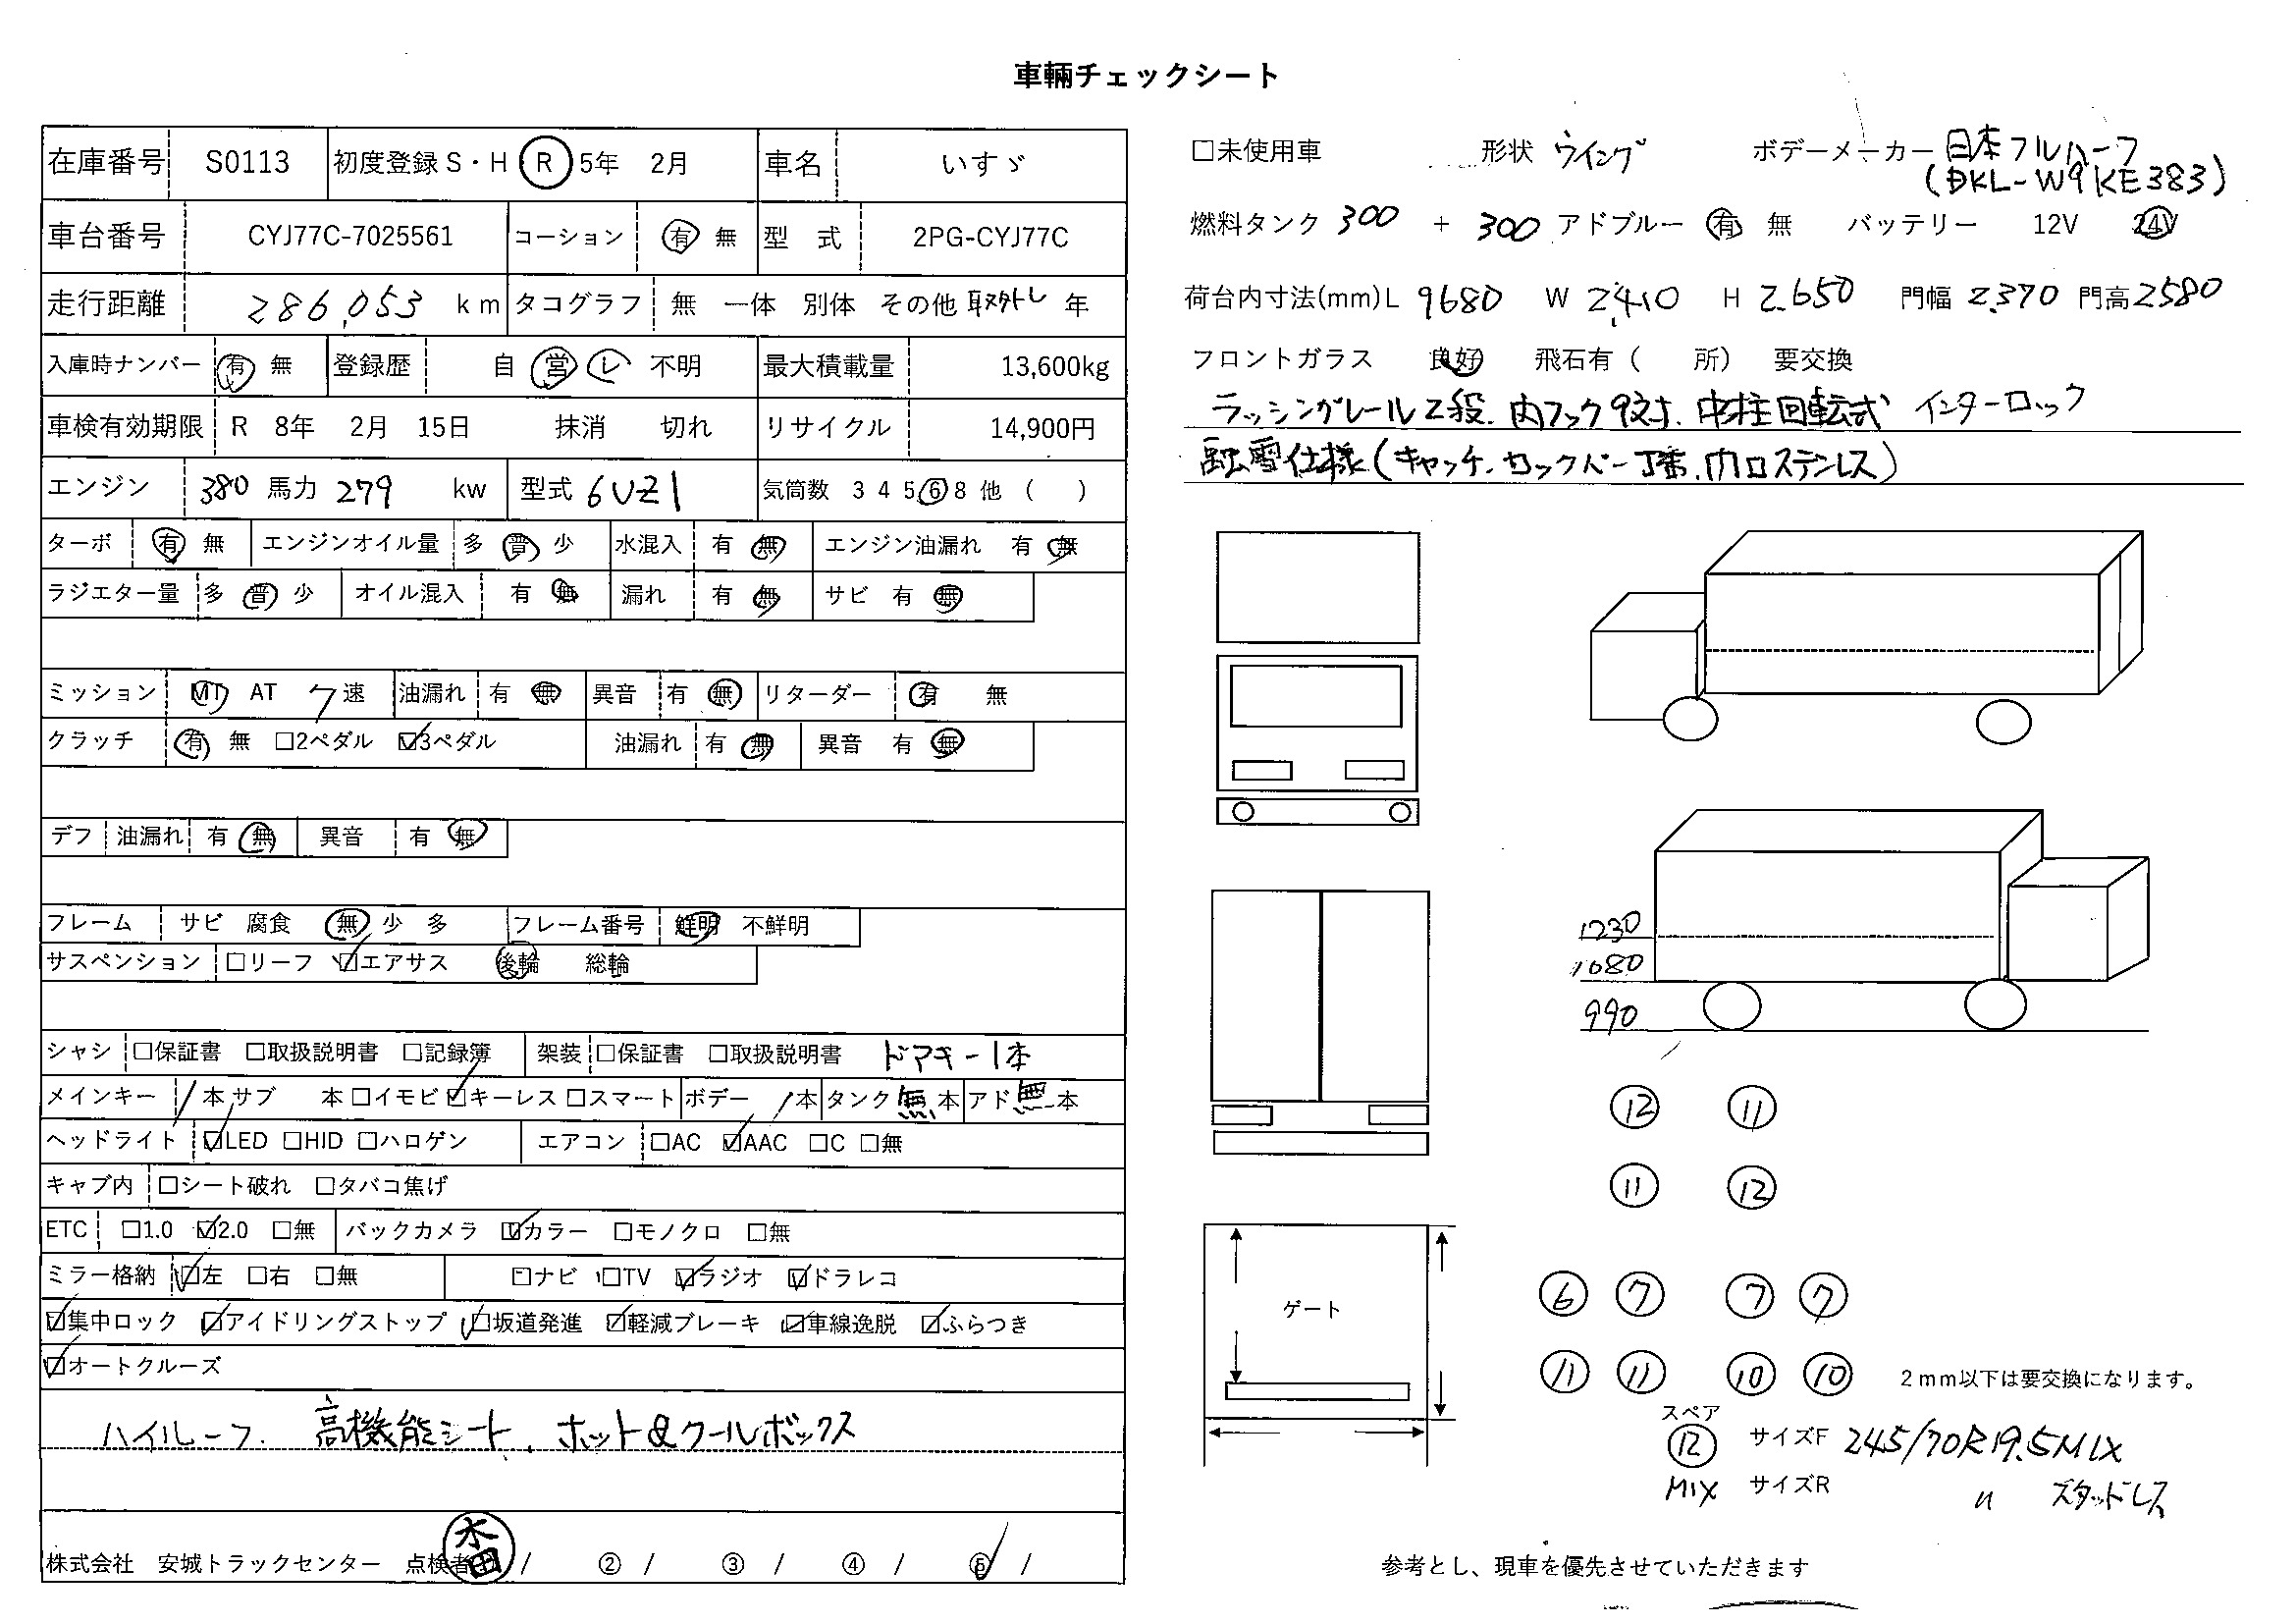 車輛チェックシート
在庫番号 S0113 初度登録 S・H R 5年 2月 車名 いすゞ
車台番号 CYJ77C-7025561 コーション 有 無 型 式 2PG-CYJ77C
走行距離 286,053 km タコグラフ 無 一体 別体 その他 取外し 年
入庫時ナンバー 有 無 登録歴 自 営 レ 不明 最大積載量 13,600kg
車検有効期限 R 8年 2月 15日 抹消 切れ リサイクル 14,900円
エンジン 380 馬力 279 kw 型式 6UZ1 気筒数 3 4 5 6 8 他 ( )
ターボ 有 無 エンジンオイル量 多 普 少 水混入 有 無 エンジン油漏れ 有 無
ラジエター量 多 普 少 オイル混入 有 無 漏れ 有 無 サビ 有 無
ミッション MT AT 7 速 油漏れ 有 無 異音 有 無 リターダー 有 無
クラッチ 有 無 □2ペダル ☑3ペダル 油漏れ 有 無 異音 有 無
デフ 油漏れ 有 無 異音 有 無
フレーム サビ 腐食 無 少 多 フレーム番号 鮮明 不鮮明
サスペンション □リーフ ☑エアサス 後輪 総輪
シャシ □保証書 □取扱説明書 □記録簿 架装 □保証書 □取扱説明書 ドアキー1本
メインキー 1 本 サブ 本 □イモビ ☑キーレス □スマート ボデー 1 本 タンク 無 本 アド 無 本
ヘッドライト ☑LED □HID □ハロゲン エアコン □AC ☑AAC □C □無
キャブ内 □シート破れ □タバコ焦げ
ETC □1.0 ☑2.0 □無 バックカメラ ☑カラー □モノクロ □無
ミラー格納 ☑左 □右 □無 □ナビ □TV ☑ラジオ ☑ドラレコ
☑集中ロック ☑アイドリングストップ ☑坂道発進 ☑軽減ブレーキ ☑車線逸脱 ☑ふらつき
☑オートクルーズ
ハイルーフ. 高機能シート. ホット&クールボックス
株式会社 安城トラックセンター 点検者 / ② / ③ / ④ / ⑤ /
□未使用車 形状 ウイング ボデーメーカー 日本フルハーフ
(DKL-W9KE383)
燃料タンク 300 + 300 アドブルー 有 無 バッテリー 12V 24V
荷台内寸法(mm) L 9680 W 2,410 H 2.650 門幅 2.370 門高 2580
フロントガラス 良好 飛石有 ( 所) 要交換
ラッシングレール2段. 内フック9対. 中柱回転式 インターロック
融雪仕様(キャッチ. ロックバー 丁番. 門口ステンレス)
1230
1080
990
⑫ ⑪
⑪ ⑫
⑥ ⑦ ⑦ ⑦
⑪ ⑪ ⑩ ⑩
2mm以下は要交換になります。
ゲート
スペア
⑫ サイズF 245/70R19.5 MIX
MIX サイズR 〃 スタッドレス
参考とし、現車を優先させていただきます